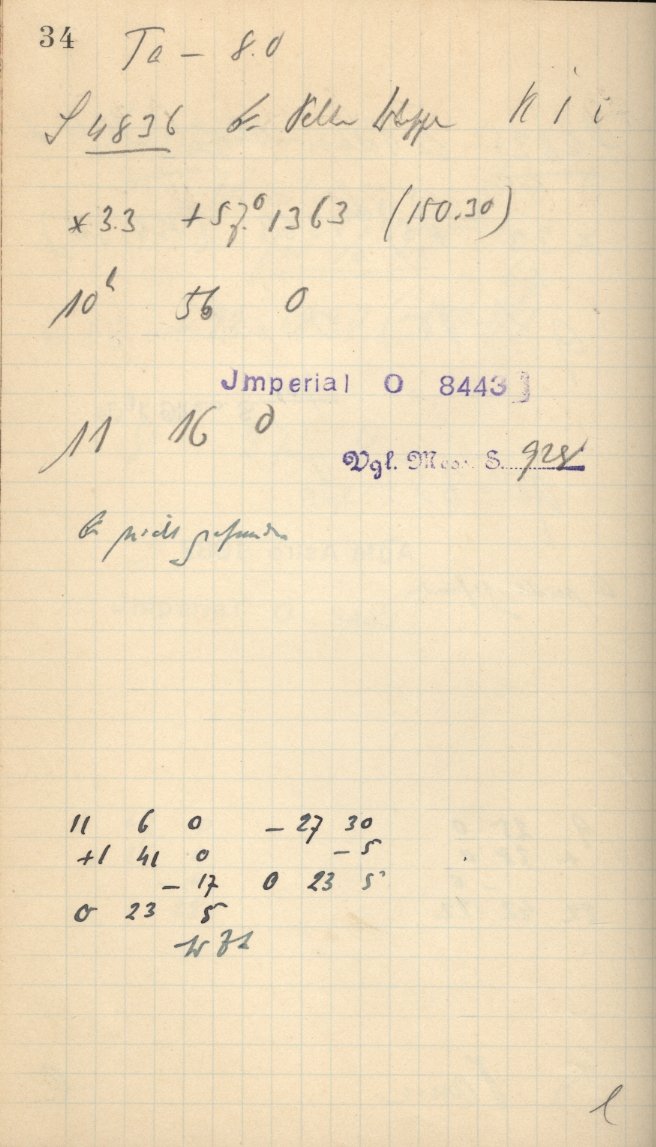 34 Ta – 8.0
S 4836 K I i
× 3.3 +57.° 1363 (150.30)
10ʰ 56 0
Jmperial O 8443
11 16 0
Vgl. Mess. S. 928
nichts gefunden
11 6 0 – 27 30
+1 41 0 – 5
– 17 0 23 5
0 23 5